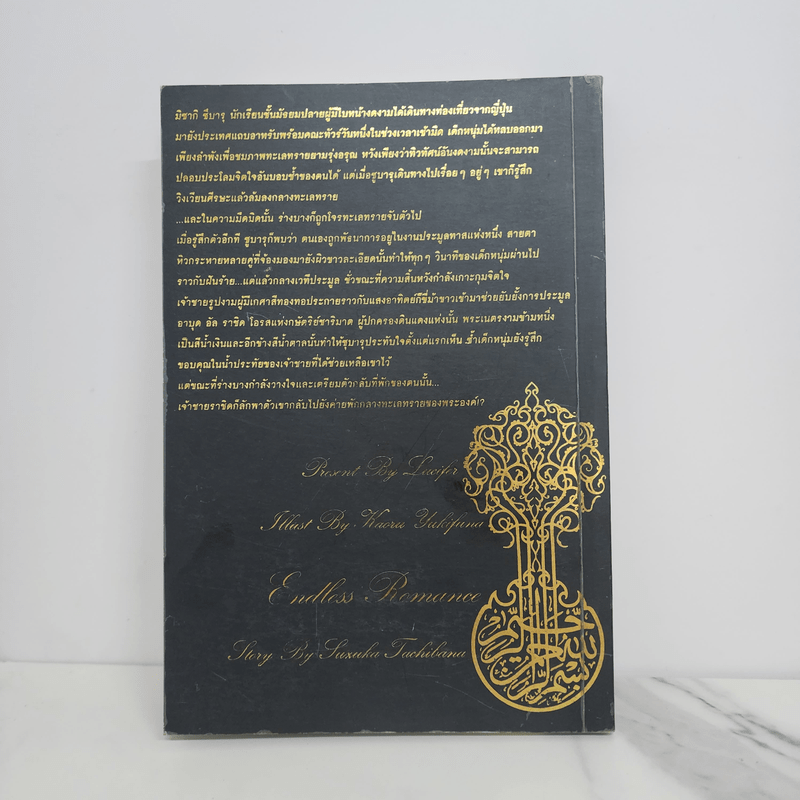 มิซากิ ซึบารุ นักเรียนชั้นมัธยมปลายผู้มีใบหน้างดงามได้เดินทางท่องเที่ยวจากญี่ปุ่น
มายังประเทศแถบอาหรับพร้อมคณะทัวร์วันหนึ่งในช่วงเวลาเช้ามืด เด็กหนุ่มได้หลบออกมา
เพียงลำพังเพื่อชมภาพทะเลทรายยามรุ่งอรุณ หวังเพียงว่าทิวทัศน์อันงดงามนั้นจะสามารถ
ปลอบประโลมจิตใจอันบอบช้ำของตนได้ แต่เมื่อซูบารุเดินทางไปเรื่อยๆ อยู่ๆ เขาก็รู้สึก
วิงเวียนศีรษะแล้วล้มลงกลางทะเลทราย
...และในความมืดมิดนั้น ร่างบางก็ถูกโจรทะเลทรายจับตัวไป
เมื่อรู้สึกตัวอีกที ซูบารุก็พบว่า ตนเองถูกพันธนาการอยู่ในงานประมูลทาสแห่งหนึ่ง สายตา
หิวกระหายหลายคู่ที่จ้องมองมายังผิวขาวละเอียดนั้นทำให้ทุกๆ วินาทีของเด็กหนุ่มผ่านไป
ราวกับฝันร้าย...แต่แล้วกลางเวทีประมูล ชั่วขณะที่ความสิ้นหวังกำลังเกาะกุมจิตใจ
เจ้าชายรูปงามผู้มีเกศาสีทองทอประกายราวกับแสงอาทิตย์ก็ขี่ม้าขาวเข้ามาช่วยยับยั้งการประมูล
อาบุด อัล ราชิด โอรสแห่งกษัตริย์ชาริมาต ผู้ปกครองดินแดงแห่งนั้น พระเนตรงามข้ามหนึ่ง
เป็นสีน้ำเงินและอีกข้างสีน้ำตาลนั้นทำให้ซูบารุประทับใจตั้งแต่แรกเห็น ซ้ำเด็กหนุ่มยังรู้สึก
ขอบคุณในน้ำประทัยของเจ้าชายที่ได้ช่วยเหลือเขาไว้
แต่ขณะที่ร่างบางกำลังวางใจและเตรียมตัวกลับที่พักของตนนั้น...
เจ้าชายราชิดก็ลักพาตัวเขากลับไปยังค่ายพักกลางทะเลทรายของพระองค์!?
Present By Lucifer
Illust By Kaoru Yukifuna
Endless Romance
Story By Suzuka Tachibana